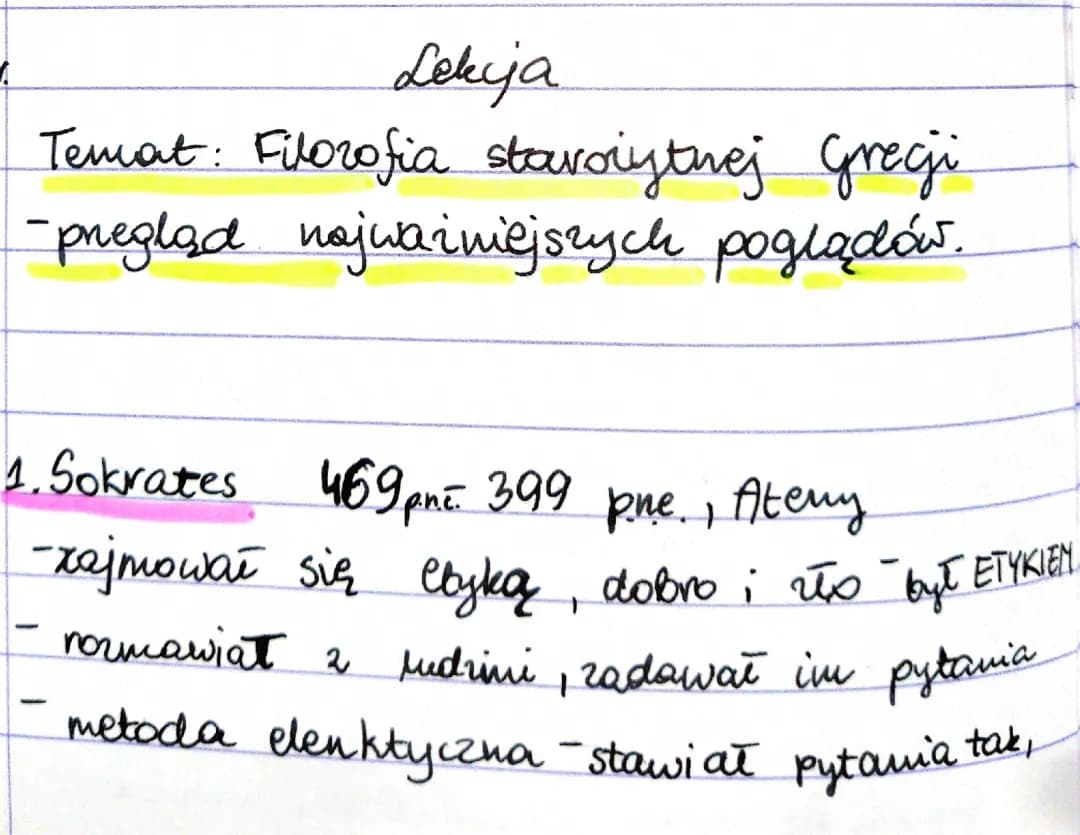 Lekcja
Temat: Filozofia starożytnej Grecji
- przegląd najważniejszych poglądów.
1. Sokrates 469 p.n.e. 399 p.n.e., Ateny
- zajmował się etyką, dobro i zło - był ETYKIEM
- rozmawiał z ludźmi, zadawał im pytania
- metoda elenktyczna - stawiał pytania tak,